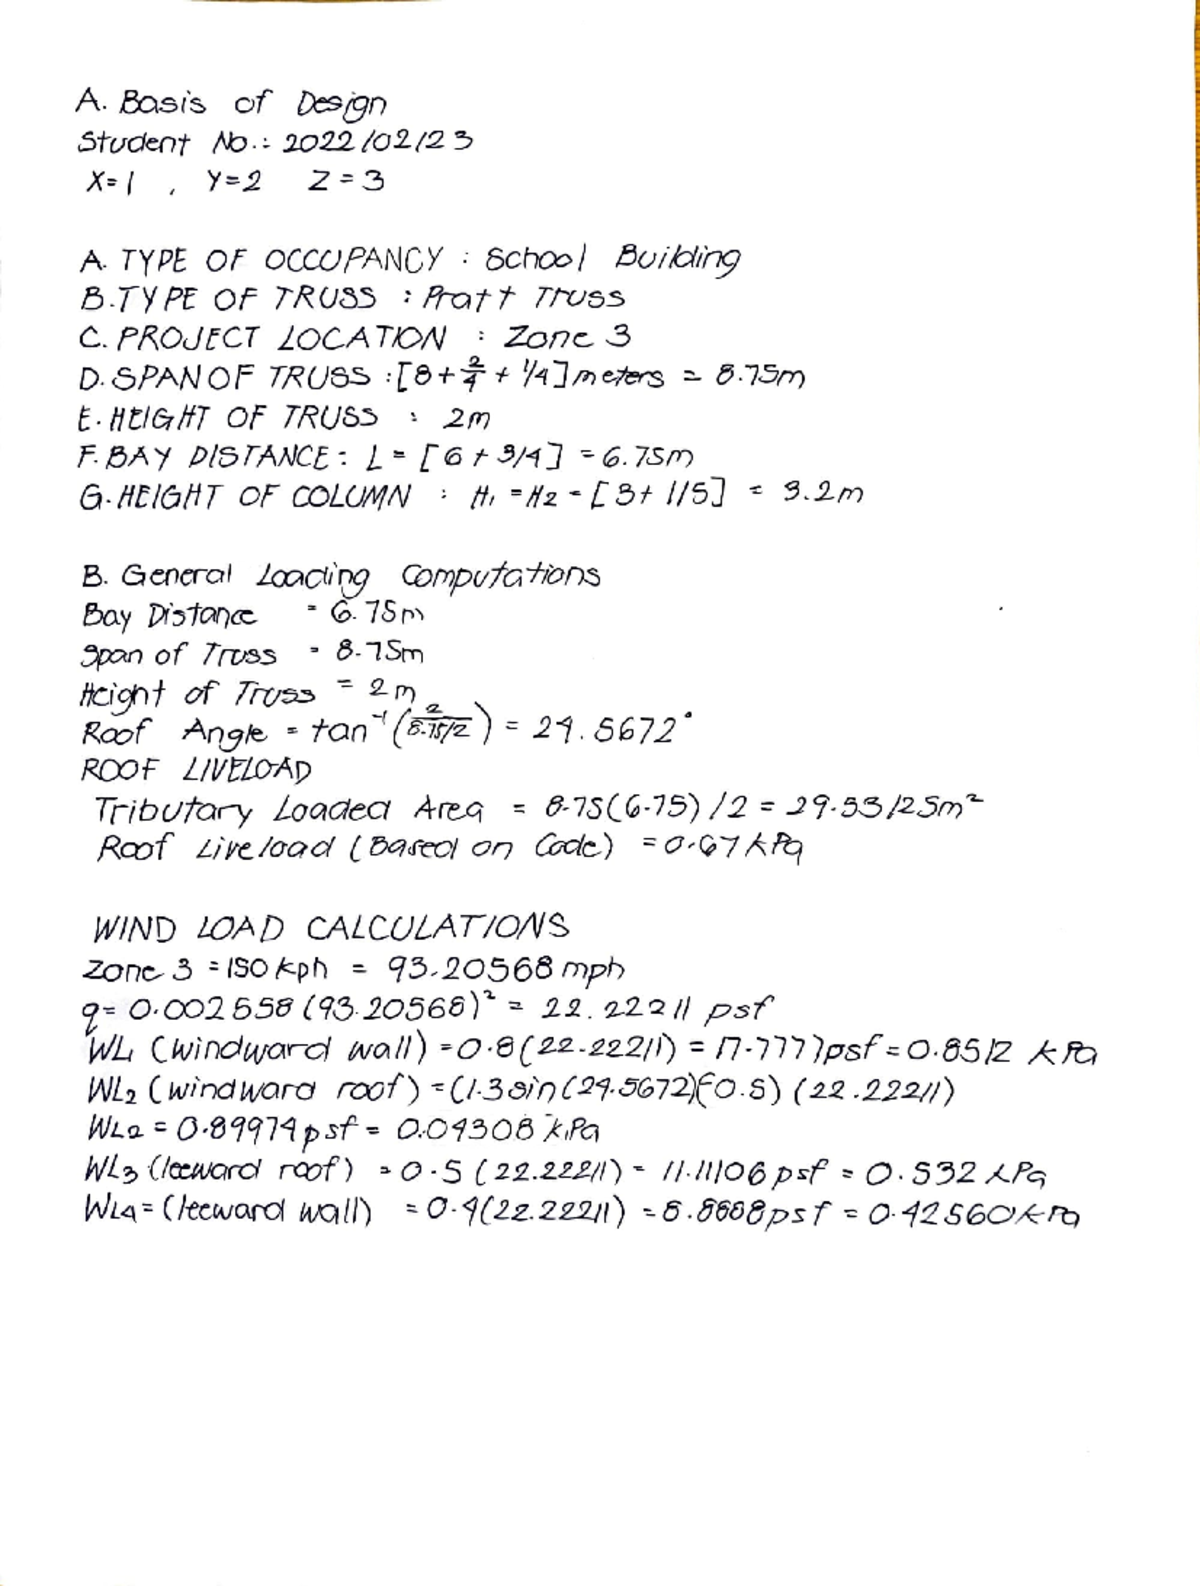 A. Basis of Design
Student No.: 2022/02123
X=1 , Y=2 Z=3
A. TYPE OF OCCUPANCY : School Building
B. TYPE OF TRUSS : Pratt Truss
C. PROJECT LOCATION : Zone 3
D. SPAN OF TRUSS : [8+2/4+1/4] meters = 8.75m
E. HEIGHT OF TRUSS : 2m
F. BAY DISTANCE : L = [6+3/4] = 6.75m
G. HEIGHT OF COLUMN : H1 = H2 = [3+1/5] = 3.2m
B. General Loading Computations
Bay Distance = 6.75m
Span of Truss = 8.75m
Height of Truss = 2m
Roof Angle = tan⁻¹(2/8.75/2) = 24.5672°
ROOF LIVELOAD
Tributary Loaded Area = 8.75(6.75)/2 = 29.53125m²
Roof Liveload (Based on Code) = 0.67 kPa
WIND LOAD CALCULATIONS
Zone 3 = 150 kph = 93.20568 mph
q = 0.002558(93.20568)² = 22.22211 psf
WL1 (windward wall) = 0.8(22.22211) = 17.7777psf = 0.8512 kPa
WL2 (windward roof) = (1.3sin(24.5672)(-0.5)(22.22211)
WL2 = 0.89974psf = 0.04308 kPa
WL3 (leeward roof) = 0.5(22.22211) = 11.11106psf = 0.532 kPa
WL4 = (leeward wall) = 0.4(22.22211) = 8.8888psf = 0.42560kPa